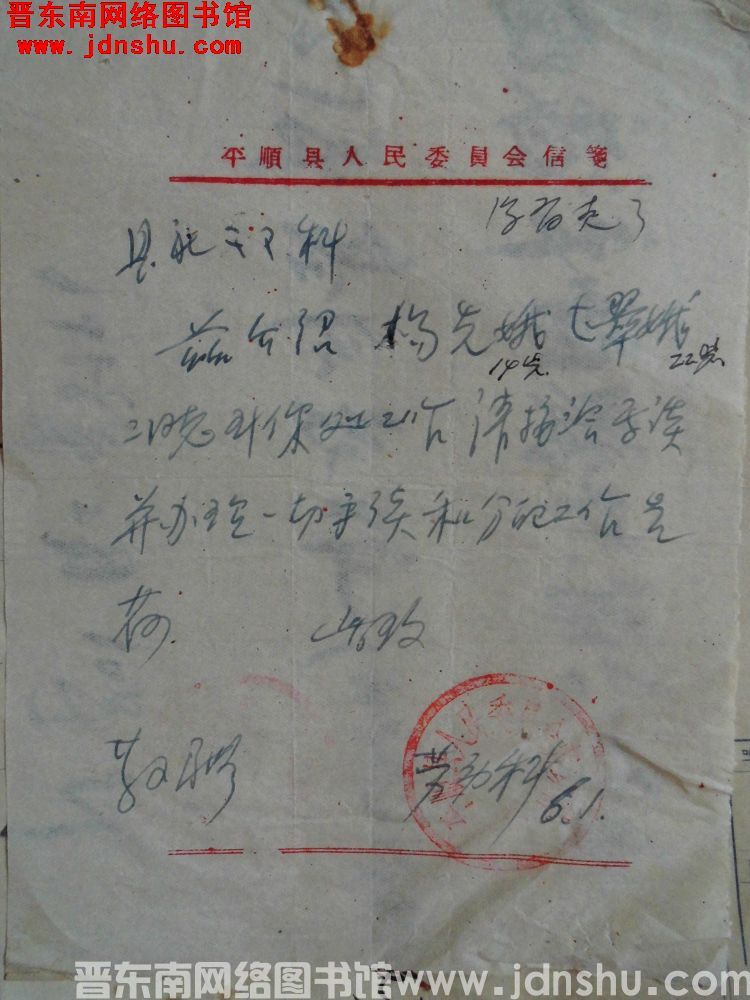 晋东南网络图书馆
www.jdnshu.com
平順县人民委員会信箋
县 科
兹介绍 杨先娥 翠娥
14岁. 22岁
二同志到你处工作 请接洽
并办理一切手续和分配工作是
荷. 此致
敬礼
劳动科 6.1.
晋东南网络图书馆 www.jdnshu.com